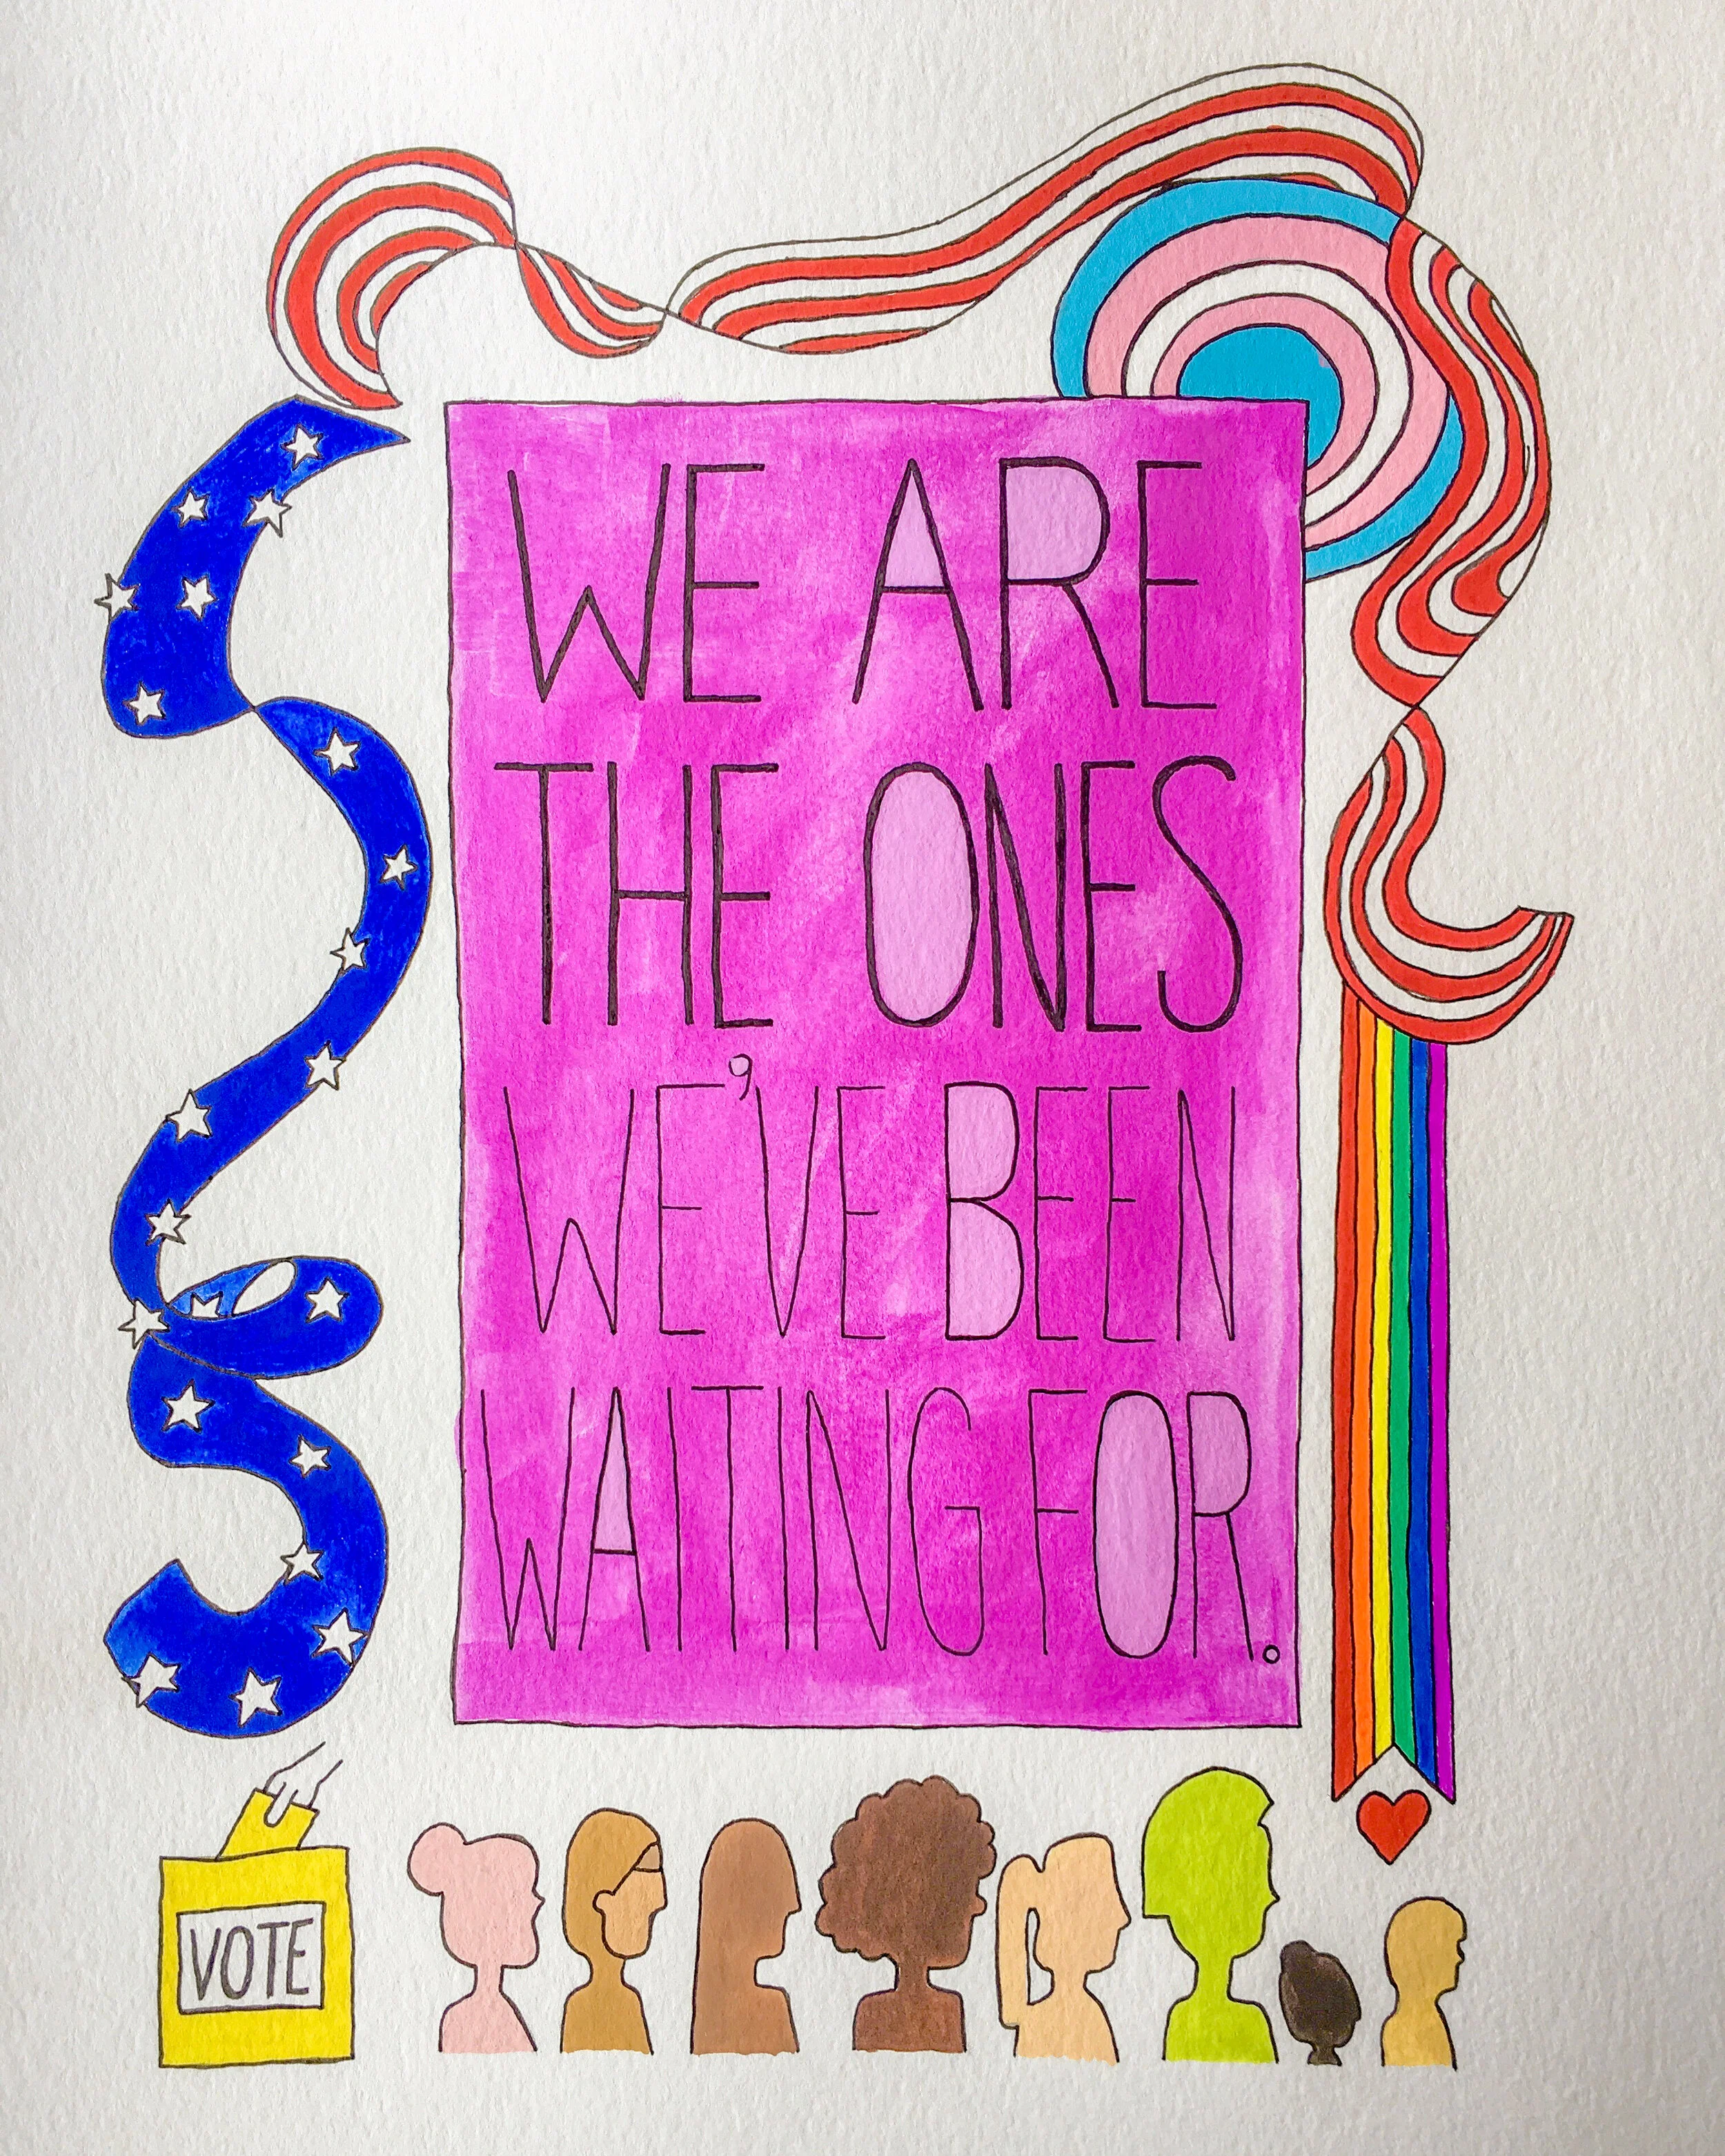 WE ARE
THE ONES
WE'VE BEEN
WAITING FOR.
VOTE